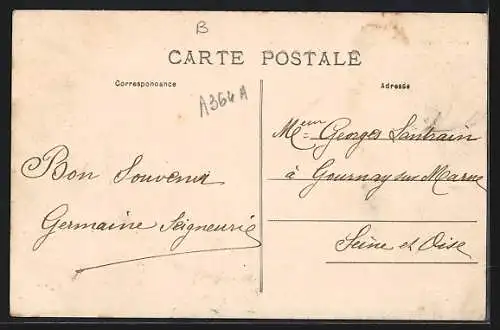 B
CARTE POSTALE
Correspondance
Adresse
A364A
Bon Souvenir
Germaine Seigneurié
Meur Georges Saintrain
à Gournay sur Marne
Seine et Oise